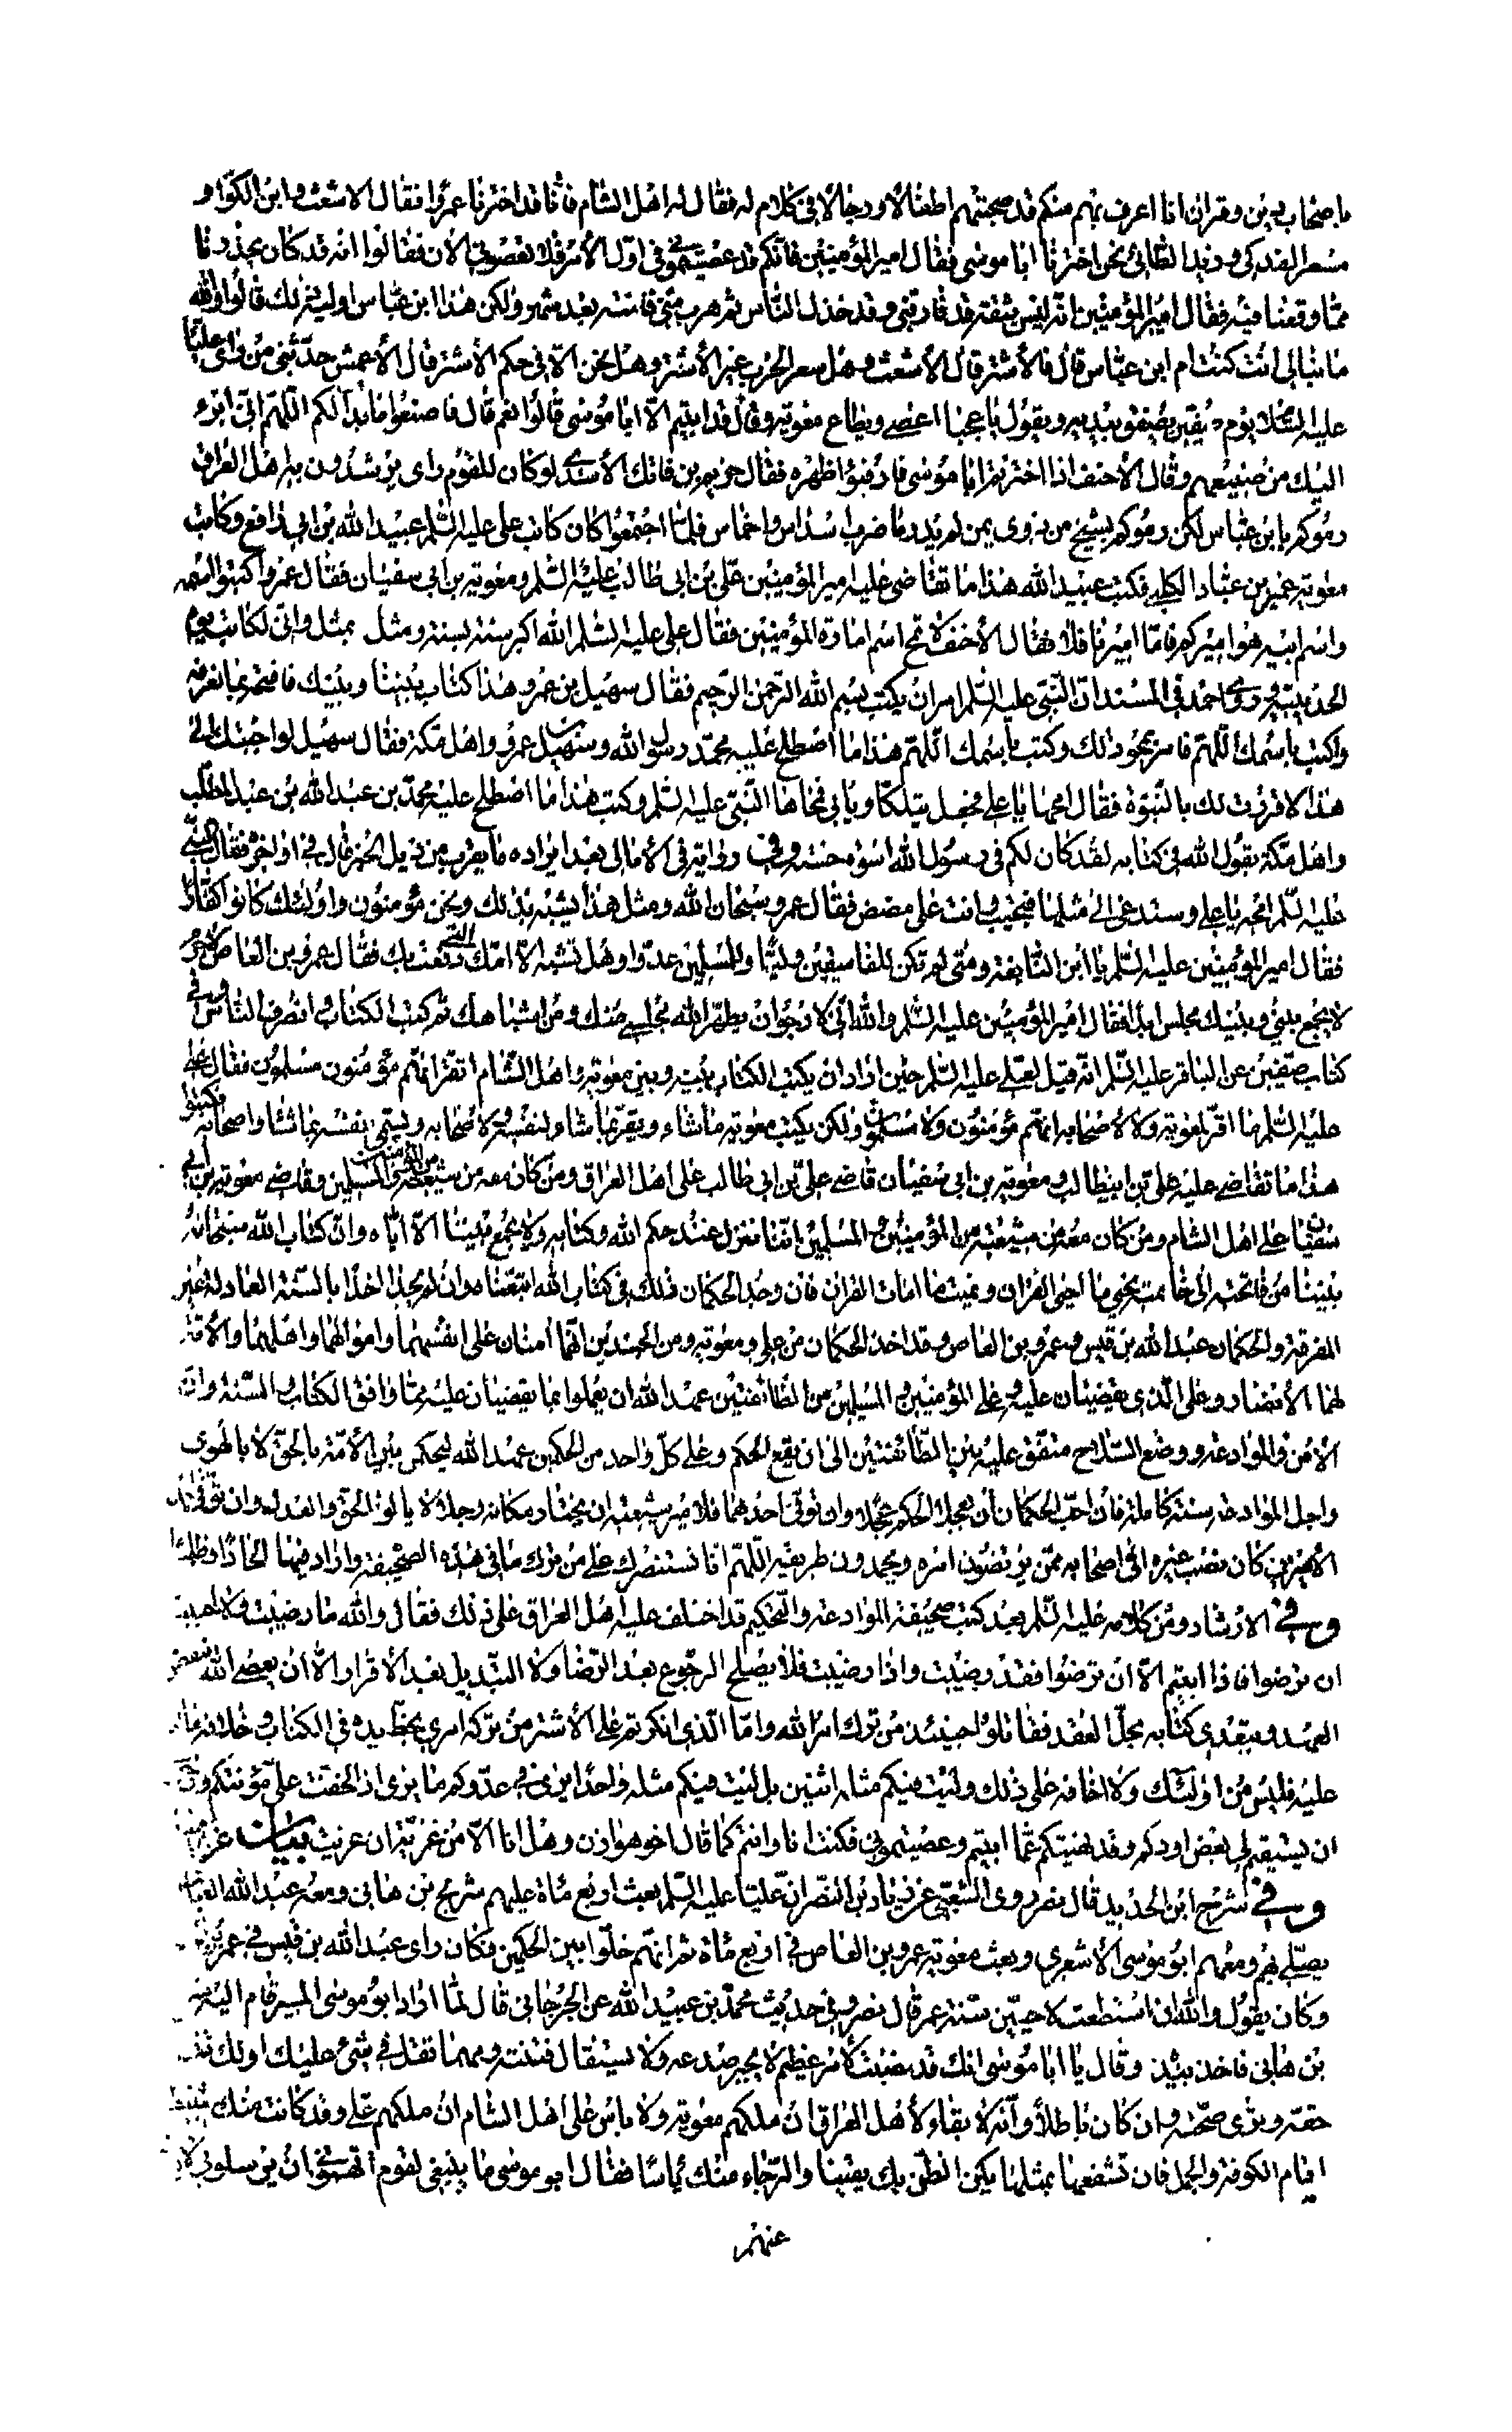 باصحاب دين وقران انا اعرف بهم منكم قد صحبتهم اطفالا ورجالا فى كلام له فقال له اهل الشام فانا قد اخترنا عمروا فقال الاشعث وابن الكوا و
مسعر الفدكى وزيد الطائى نحن اخترنا ابا موسى فقال امير المؤمنين فانكم قد عصيتمونى فى اول الامر فلا تعصونى الان فقالوا انه قد كان يحذرنا
مما وقعنا فيه فقال امير المؤمنين انه ليس بثقة قد فارقنى وقد خذل الناس ثم هرب منى فامنته بعد شهر ولكن هذا ابن عباس اوليه ذلك قالوا والله
ما نبالى انت كنت ام ابن عباس قال فالاشتر قال الاشعث وهل سعر الحرب غير الاشتر وهل نحن الا فى حكم الاشتر قال الاعمش حدثنى من راى عليا
عليه السلام يوم صفين يصفق بيديه ويقول يا عجبا اعصى ويطاع معوية وقال قد ابيتم الا ابا موسى قالوا نعم قال فاصنعوا ما بدا لكم اللهم انى ابرء
اليك من صنيعهم وقال الاحنف اذا اخترتم ابا موسى فادفئوا ظهره فقال خريم بن فاتك الاسدى لو كان للقوم راى يرشدون به اهل العراق
رموكم بابن عباس لكن رموكم بشيخ من ذوى يمن لم يدر ما ضرب اسداس واخماس فلما اجتمعوا كان كاتب على عليه السلم عبيد الله بن ابى رافع وكاتب
معوية عمير بن عباد الكلبى فكتب عبيد الله هذا ما تقاضى عليه امير المؤمنين على بن ابى طالب عليه السلم ومعوية بن ابى سفيان فقال عمرو اكتبوا اسمه
واسم ابيه هو اميركم فاما اميرنا فلا فقال الاحنف لا تمح اسم امارة المؤمنين فقال على عليه السلم الله اكبر سنة بسنة ومثل بمثل وانى لكاتب يوم
الحديبية وروى احمد فى المسند ان النبى عليه السلم امر ان يكتب بسم الله الرحمن الرحيم فقال سهيل بن عمرو هذا كتاب بيننا وبينك فافتحه بما نعرفه
واكتب باسمك اللهم فامر بمحو ذلك وكتب باسمك اللهم هذا ما اصطلح عليه محمد رسول الله وسهيل بن عمرو واهل مكة فقال سهيل لو اجبتك الى
هذا لاقررت لك بالنبوة فقال امحها يا على فجعل يتلكا ويابى فمحاها النبى عليه السلم وكتب هذا ما اصطلح عليه محمد بن عبد الله بن عبد المطلب
واهل مكة يقول الله فى كتابه لقد كان لكم فى رسول الله اسوة حسنة وفى رواية فى الامالى بعد ايراده ما يقرب من ذيل الخبر قال فى اواخره فقال النبى
عليه السلم امحه يا على وستدعى الى مثلها فتجيب وانت على مضض فقال عمرو سبحان الله ومثل هذا يشبه بذلك ونحن مؤمنون واولئك كانوا كفارا
فقال امير المؤمنين عليه السلم يا ابن النابغة ومتى لم تكن للفاسقين وليا وللمسلمين عدوا وهل تشبه الا امك التى دفعت بك فقال عمرو بن العاص لا جرم
لا يجمع بينى وبينك مجلس ابدا فقال امير المؤمنين عليه السلم والله انى لارجو ان يطهر الله مجلسى منك ومن اشباهك ثم كتب الكتاب وانصرف الناس وفى
كتاب صفين عن الباقر عليه السلم انه قيل لعلى عليه السلم حين اراد ان يكتب الكتاب بينه وبين معوية واهل الشام اتقر انهم مؤمنون مسلمون فقال على
عليه السلم ما اقر لمعوية ولا لاصحابه انهم مؤمنون ولا مسلمون ولكن يكتب معوية ما شاء ويقر بما شاء لنفسه ولاصحابه ويسمى نفسه بما شاء واصحابه فكتبوا
هذا ما تقاضى عليه على بن ابيطالب ومعوية بن ابى سفيان قاضى على بن ابى طالب على اهل العراق ومن كان معه من شيعته من المؤمنين والمسلمين وقاضى معوية بن ابى
سفيان على اهل الشام ومن كان معه من شيعته من المؤمنين والمسلمين اننا ننزل عند حكم الله وكتابه ولا يجمع بيننا الا اياه وان كتاب الله سبحانه
بيننا من فاتحته الى خاتمته نحيى ما احيى القران ونميت ما امات القران فان وجد الحكمان ذلك فى كتاب الله اتبعناه وان لم يجداه اخذا بالسنة العادلة غير
المفرقة والحكمان عبد الله بن قيس وعمرو بن العاص وقد اخذ الحكمان من على ومعوية ومن الجندين انهما امنان على انفسهما واموالهما واهلهما والامة
لهما الانصار وعلى الذى يقضيان عليه وعلى المؤمنين والمسلمين من الطائفتين عهد الله ان يعملوا بما يقضيان عليه مما وافق الكتاب والسنة وان
الامن والموادعة ووضع السلاح متفق عليه بين الطائفتين الى ان يقع الحكم وعلى كل واحد من الحكمين عهد الله ليحكمن بين الامة بالحق لا بالهوى
واجل الموادعة سنة كاملة فان احب الحكمان ان يعجلا الحكم عجلاه وان توفى احدهما فلامير شيعته ان يختار مكانه رجلا لا يالو الحق والعدل وان توفى احد
الاميرين كان نصب غيره الى اصحابه ممن يرتضون امره ويحمدون طريقته اللهم انا نستنصرك على من ترك ما فى هذه الصحيفة واراد فيها الحادا وظلما
وفى الارشاد ومن كلامه عليه السلم بعد كتب صحيفة الموادعة والتحكيم قد اختلف عليه اهل العراق على ذلك فقال والله ما رضيت ولا احببت
ان ترضوا فاذا ابيتم الا ان ترضوا فقد رضيت واذا رضيت فلا يصلح الرجوع بعد الرضا ولا التبديل بعد الاقرار الا ان يعصى الله بنقض
العهد ويتعدى كتابه بحل العقد فقاتلوا حينئذ من ترك امر الله واما الذى انكرتم على الاشتر من تركه امرى بخط يده فى الكتاب وخلافه ما
عليه فليس من اولئك ولا اخافه على ذلك وليت فيكم مثله اثنين بل ليت فيكم مثله واحدا يرى فى عدوكم ما يرى اذا لخفت على مؤنتكم
ان يستقيم لى بعض اودكم وقد نهيتكم عما ابيتم وعصيتمونى فكنت انا وانتم كما قال اخو هوازن وهل انا الا من غزية ان غويت
وفى شرح ابن الحديد قال نصر روى الشعبى عن زياد بن النضر ان عليا عليه السلم بعث اربع مأة عليهم شريح بن هانى ومعه عبد الله
يصلى بهم ومعهم ابو موسى الاشعرى وبعث معوية عمرو بن العاص فى اربع مأة ثم انهم خلوا بين الحكمين فكان راى عبد الله بن قيس فى عمر
وكان يقول والله ان استطعت لاحيين سنة عمر قال نصر وفى حديث محمد بن عبيد الله عن الجرجانى قال لما اراد ابو موسى المسير قام اليه
بن هانى فاخذ بيده وقال يا ابا موسى انك قد نصبت لامر عظيم لا يجبر صدعه ولا تستقال فتنته ومهما تقل فى شئ عليك او لك
حقه ويرى صحته وان كان باطلا وانه لا بقاء لاهل العراق ان ملكهم معوية ولا باس على اهل الشام ان ملكهم على وقد كانت منك
ايام الكوفة والجمل فان تشفعها بمثلها يكن الظن بك يقينا والرجاء منك ياسا فقال ابو موسى ما ينبغى لقوم اتهمونى ان يرسلونى
عنهم